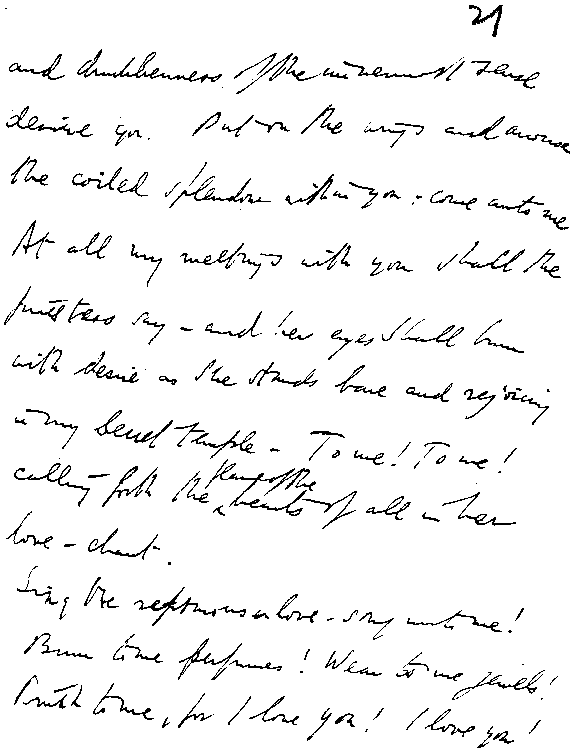 21
and drunkenness of the innermost sense
desire you. Put on the wings and arouse
the coiled splendour within you: come unto me
At all my meetings with you shall the
priestess say - and her eyes shall burn
with desire as she stands bare and rejoicing
in my secret temple - To me! To me!
calling forth the flame of the hearts of all in her
love-chant.
Sing the rapturous love-song unto me!
Burn to me perfumes! Wear to me jewels!
Drink to me, for I love you! I love you!